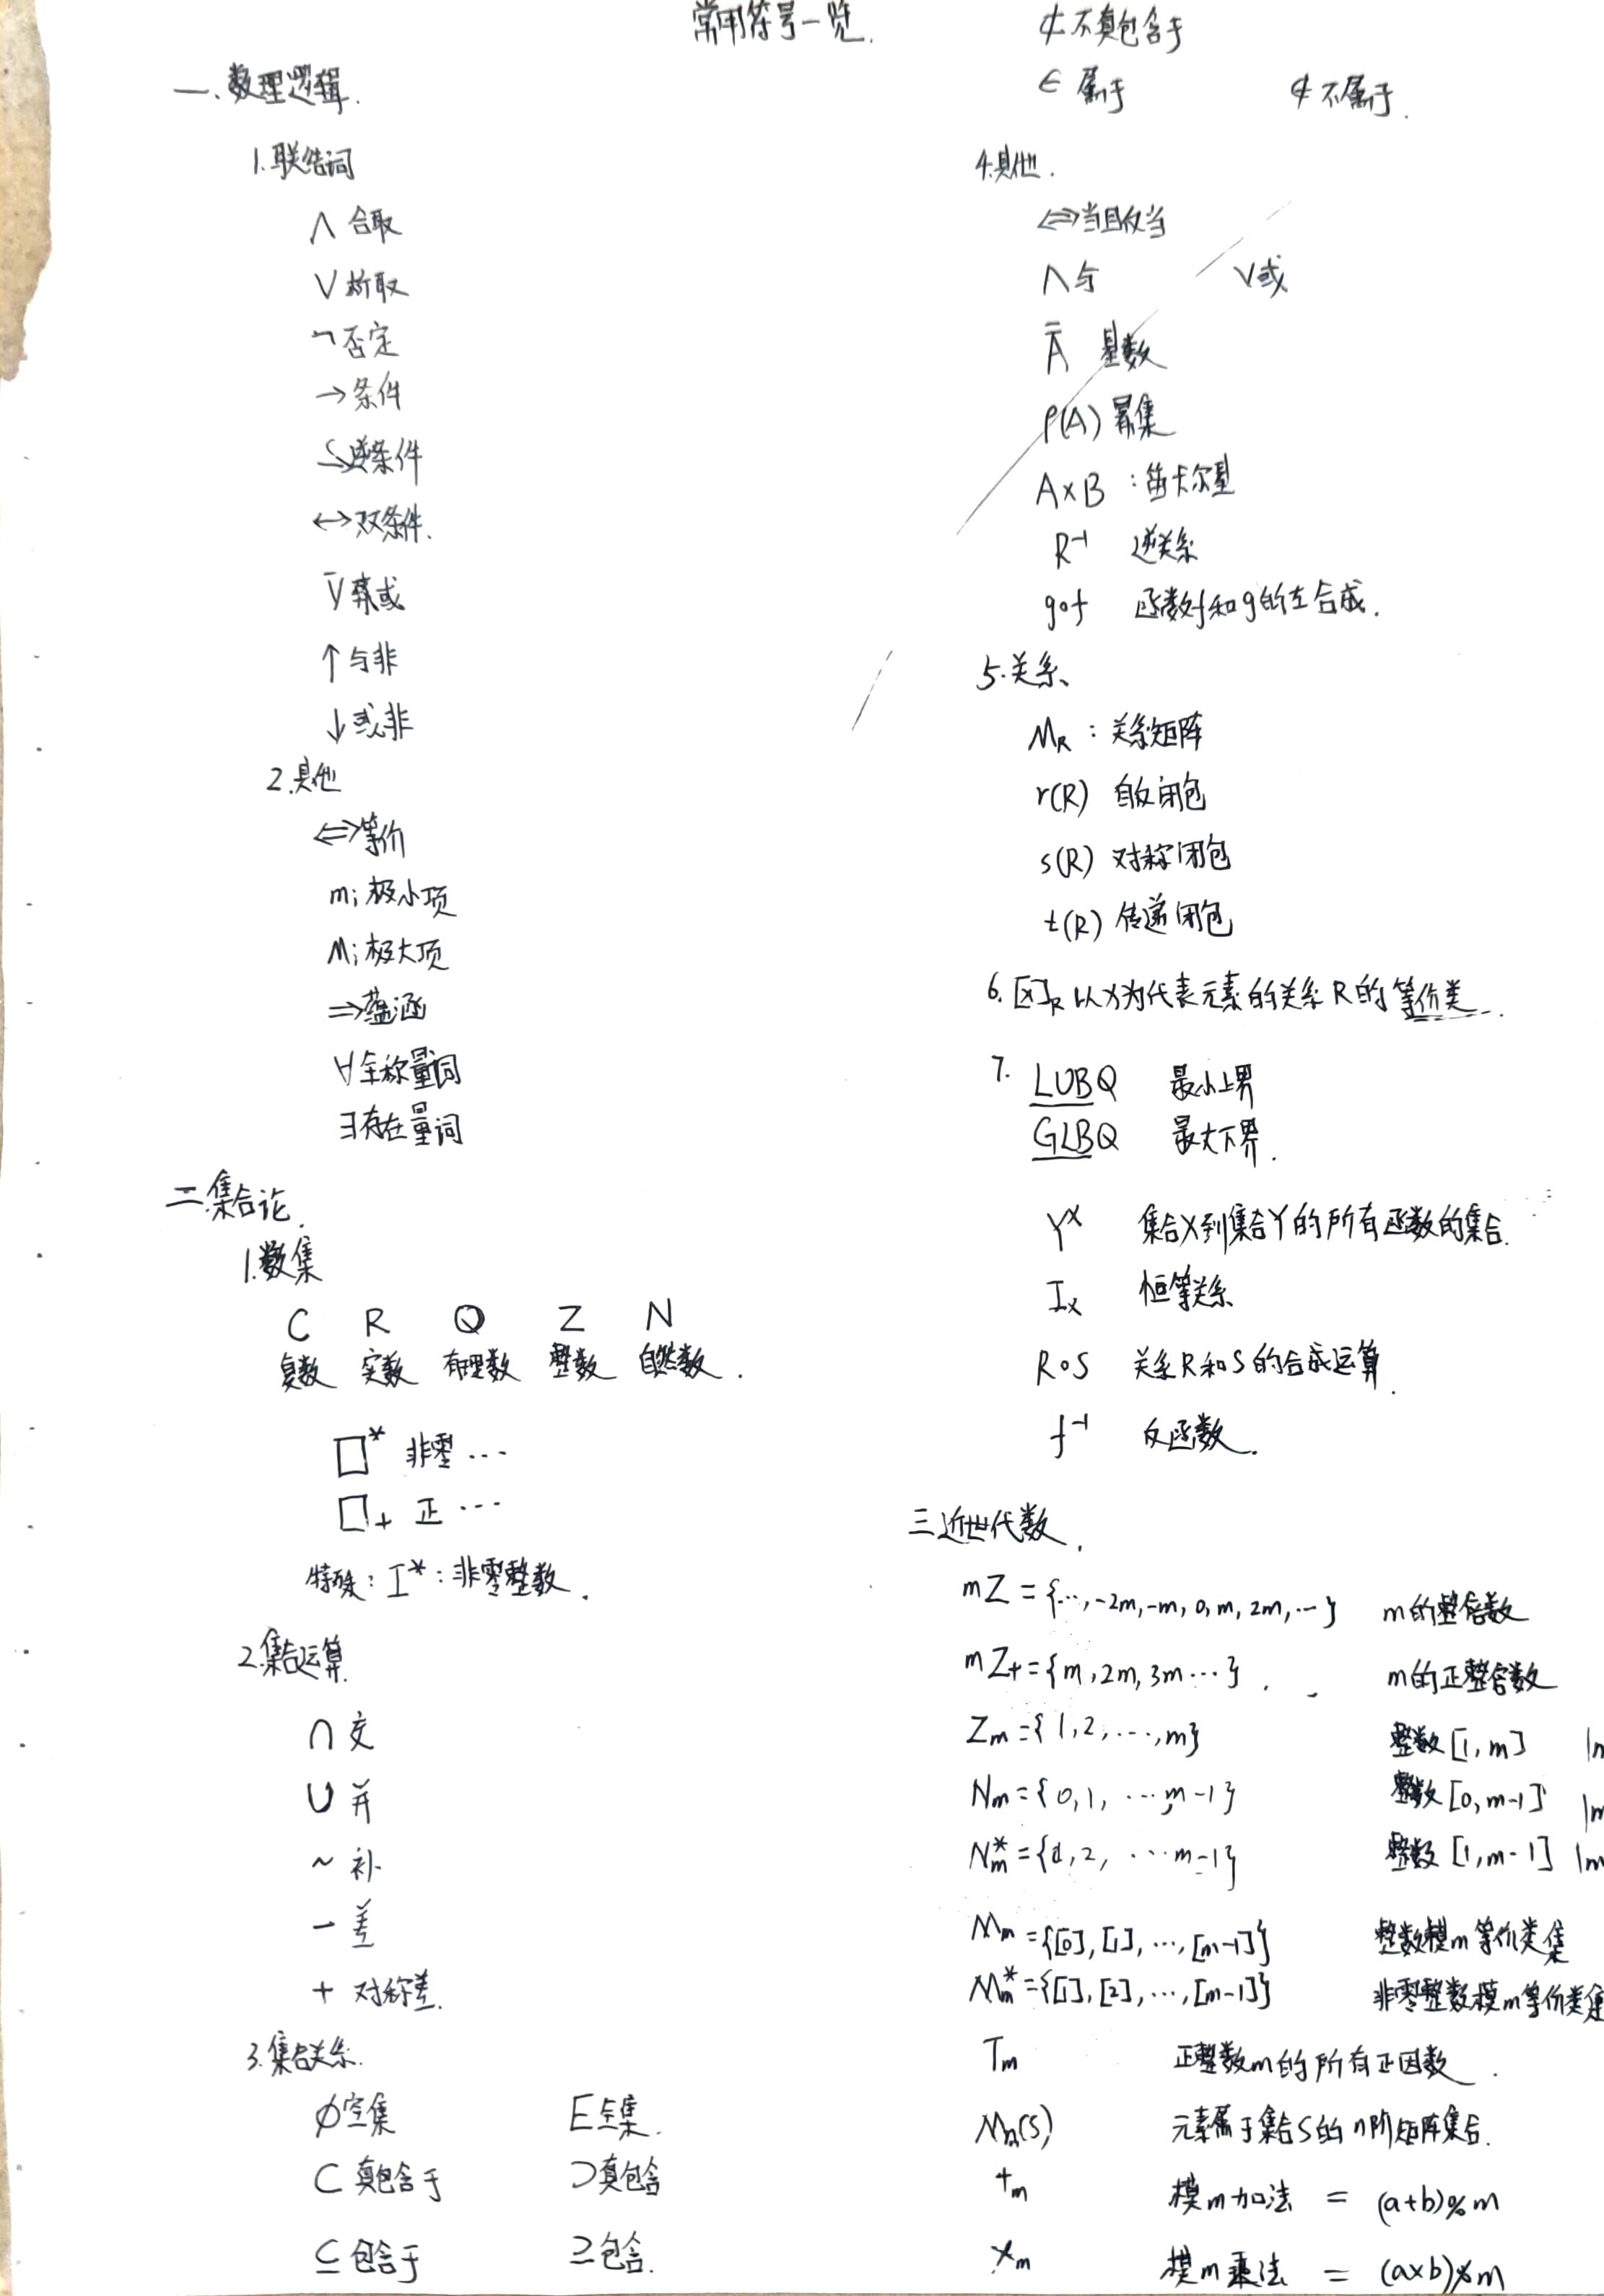 常用符号一览.
一.数理逻辑.
1.联结词
∧ 合取
∨ 析取
¬ 否定
→ 条件
逆条件
↔ 双条件.
异或
↑ 与非
↓ 或非
2.其他
⇔ 等价
mᵢ 极小项
Mᵢ 极大项
⇒ 蕴涵
∀ 全称量词
∃ 存在量词
二.集合论.
1.数集
C R Q Z N
复数 实数 有理数 整数 自然数.
□* 非零…
□₊ 正…
特殊: I*: 非零整数.
2.集合运算
∩ 交
∪ 并
~ 补
− 差
+ 对称差.
3.集合关系.
∅ 空集 E 全集.
⊂ 真包含于 ⊃ 真包含
⊆ 包含于 ⊇ 包含.
⊄ 不真包含于
∈ 属于 ∉ 不属于.
4.其他.
⇔ 当且仅当
∧ 与 ∨ 或
A̿ 基数
ρ(A) 幂集
A×B : 笛卡尔
R⁻¹ 逆关系
g∘f 函数f和g的左合成.
5.关系、
M_R : 关系矩阵
r(R) 自反闭包
s(R) 对称闭包
t(R) 传递闭包
6. [x]_R 以x为代表元素的关系R的等价类.
7. LUBQ 最小上界
GLBQ 最大下界.
Yˣ 集合X到集合Y的所有函数的集合.
Iₓ 恒等关系
R∘S 关系R和S的合成运算.
f⁻¹ 反函数.
三.近世代数.
mZ = {…, -2m, -m, 0, m, 2m, …} m的整倍数
mZ₊ = {m, 2m, 3m …}. m的正整倍数
Zₘ = {1, 2, …, m} 整数[1, m]
Nₘ = {0, 1, … m-1} 整数[0, m-1]
Nₘ* = {1, 2, … m-1} 整数[1, m-1]
Mₘ = {[0], [1], …, [m-1]} 整数模m等价类集
Mₘ* = {[1], [2], …, [m-1]} 非零整数模m等价类集
Tₘ 正整数m的所有正因数.
Mₙ(S) 元素属于集合S的n阶矩阵集合.
+ₘ 模m加法 = (a+b)%m
×ₘ 模m乘法 = (a×b)%m